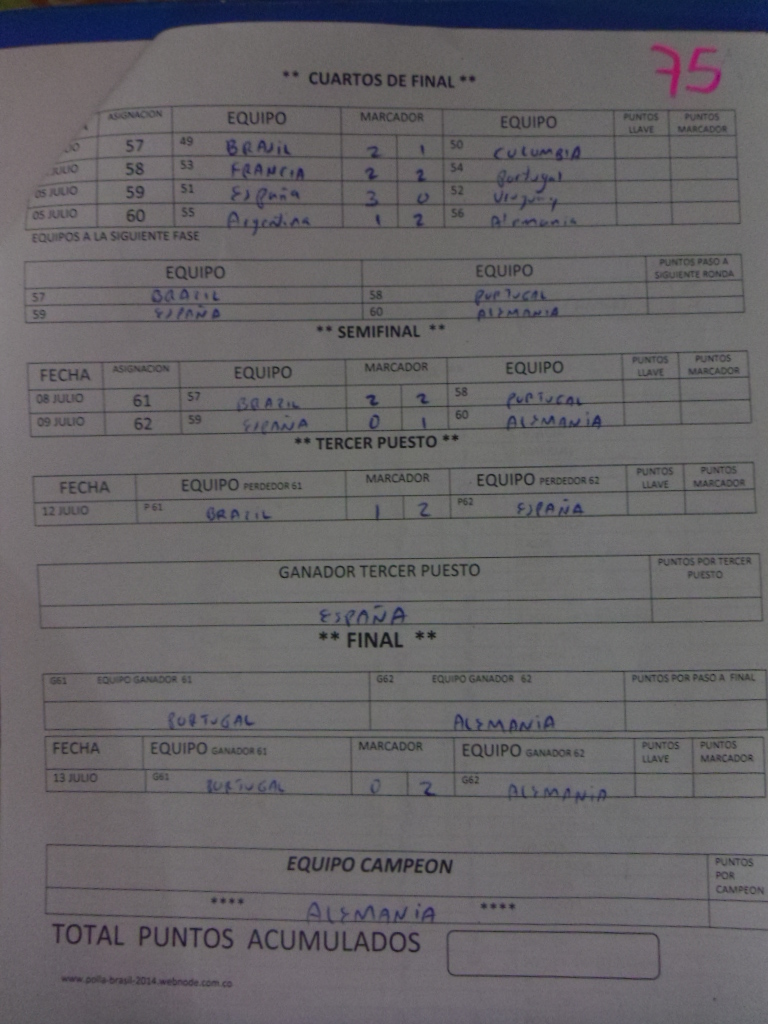 75
** CUARTOS DE FINAL **
ASIGNACION EQUIPO MARCADOR EQUIPO PUNTOS LLAVE PUNTOS MARCADOR
57 49 BRASIL 2 1 50 CULUMBIA
JULIO 58 53 FRANCIA 2 2 54 Portugal
05 JULIO 59 51 España 3 0 52 Uruguay
05 JULIO 60 55 Argentina 1 2 56 Alemania
EQUIPOS A LA SIGUIENTE FASE
EQUIPO EQUIPO PUNTOS PASO A SIGUIENTE RONDA
57 BRAZIL 58 PORTUGAL
59 ESPAÑA 60 ALEMANIA
** SEMIFINAL **
FECHA ASIGNACION EQUIPO MARCADOR EQUIPO PUNTOS LLAVE PUNTOS MARCADOR
08 JULIO 61 57 BRAZIL 2 2 58 PORTUGAL
09 JULIO 62 59 ESPAÑA 0 1 60 ALEMANIA
** TERCER PUESTO **
FECHA EQUIPO PERDEDOR 61 MARCADOR EQUIPO PERDEDOR 62 PUNTOS LLAVE PUNTOS MARCADOR
12 JULIO P 61 BRAZIL 1 2 P62 ESPAÑA
GANADOR TERCER PUESTO PUNTOS POR TERCER PUESTO
ESPAÑA
** FINAL **
G61 EQUIPO GANADOR 61 G62 EQUIPO GANADOR 62 PUNTOS POR PASO A FINAL
PORTUGAL ALEMANIA
FECHA EQUIPO GANADOR 61 MARCADOR EQUIPO GANADOR 62 PUNTOS LLAVE PUNTOS MARCADOR
13 JULIO G61 PORTUGAL 0 2 G62 ALEMANIA
EQUIPO CAMPEON PUNTOS POR CAMPEON
**** ALEMANIA ****
TOTAL PUNTOS ACUMULADOS
www.polla-brasil-2014.webnode.com.co